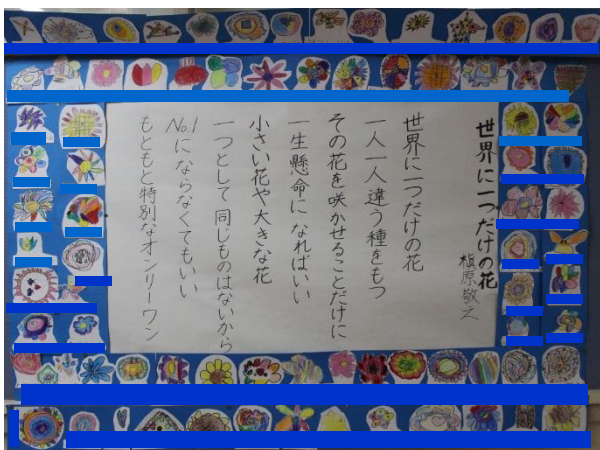 世界に一つだけの花
槇原敬之
世界に一つだけの花
一人一人違う種をもつ
その花を咲かせることだけに
一生懸命になればいい
小さい花や大きな花
一つとして同じものはないから
No.1にならなくてもいい
もともと特別なオンリーワン